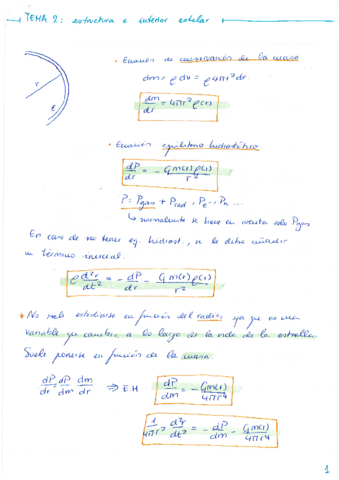 TEMA 2: estructura e interior estelar
r
· Ecuación de conservación de la masa
dm = ρ dV = ρ 4πr² dr.
dm/dr = 4πr² ρ(r)
· Ecuación equilibrio hidrostático
dP/dr = - G m(r) ρ(r)/r²
P = Pgas + Prad, Pe-, Pn ...
↳ normalmente se tiene en cuenta solo Pgas
En caso de no tener eq. hidrost., se le debe añadir
un término inercial.
ρ d²r/dt² = - dP/dr - G m(r) ρ(r)/r²
* No suele estudiarse en función del radio, ya que es una
variable que cambia a lo largo de la vida de la estrella.
Suele ponerse en función de la masa.
dP/dr = dP/dm dm/dr ⇒ E.H dP/dm = - G m(r)/4πr⁴
1/4πr² d²r/dt² = - dP/dm - G m(r)/4πr⁴
1